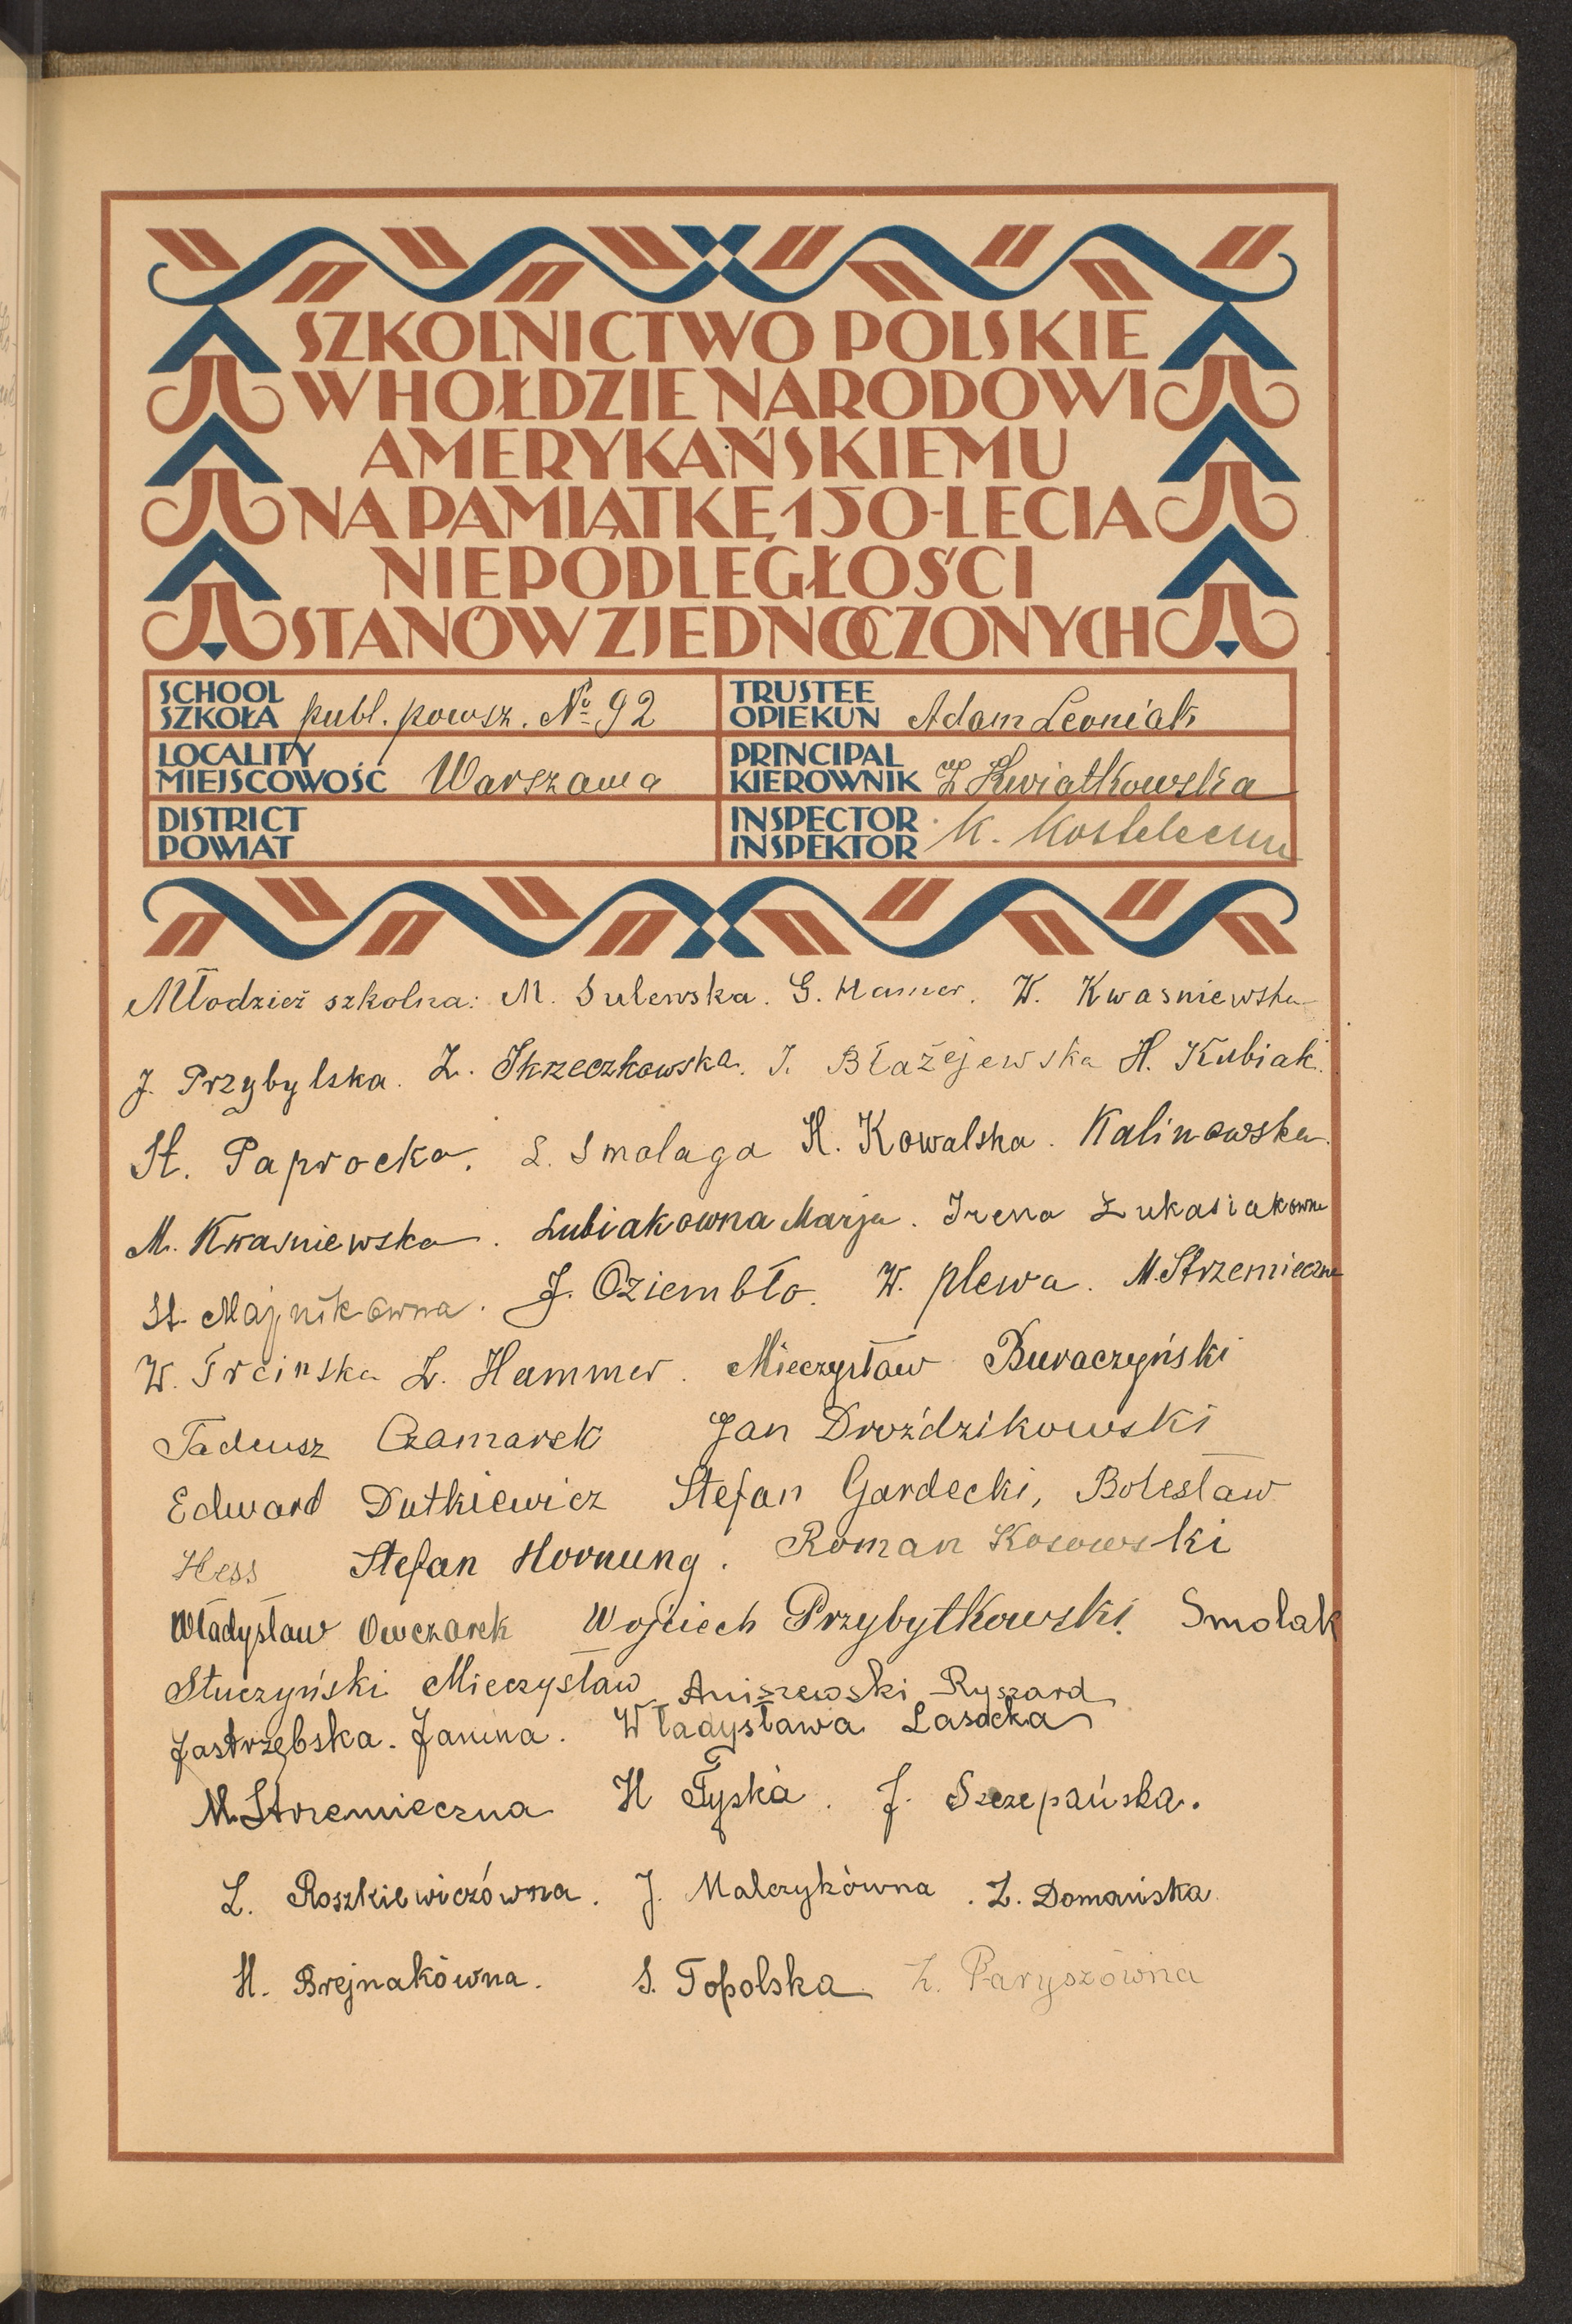 SZKOLNICTWO POLSKIE
W HOŁDZIE NARODOWI
AMERYKAŃSKIEMU
NA PAMIĄTKĘ 150-LECIA
NIEPODLEGŁOŚCI
STANÓW ZJEDNOCZONYCH
SCHOOL
SZKOŁA publ. powsz. № 92
TRUSTEE
OPIEKUN Adam Leoniak
LOCALITY
MIEJSCOWOŚĆ Warszawa
PRINCIPAL
KIEROWNIK Z Kwiatkowska
DISTRICT
POWIAT
INSPECTOR
INSPEKTOR K.
Młodzież szkolna: M. Sulewska. G. Hamer. W. Kwasniewska
J. Przybylska. Z. Skrzeczkowska. J. Błażejewska H. Kubiak.
St. Paprocka. L. Smolaga H. Kowalska. Kalinowska.
M. Kwasniewska. Lubiakowna Marja. Irena Łukasiakowna
St. Majnikowna. J. Oziembło. W. plewa. M. Strzemieczna
W. Trcinska L. Hammer. Mieczysław Buraczyński
Tadeusz Czamarek Jan Droździkowski
Edward Dutkiewicz Stefan Gardecki, Bolesław
Hess Stefan Hornung. Roman Kosowski
Władysław Owczarek Wojciech Przybytkowski. Smolak
Stuczyński Mieczysław Aniszewski Ryszard
Jastrzębska. Janina. Władysława Lasocka
M. Strzemieczna H Tyska. J. Szczepańska.
L. Roszkiewiczówna. J. Malczykówna. Z. Domańska
H. Brejnakówna. S. Topolska Z. Paryszówna